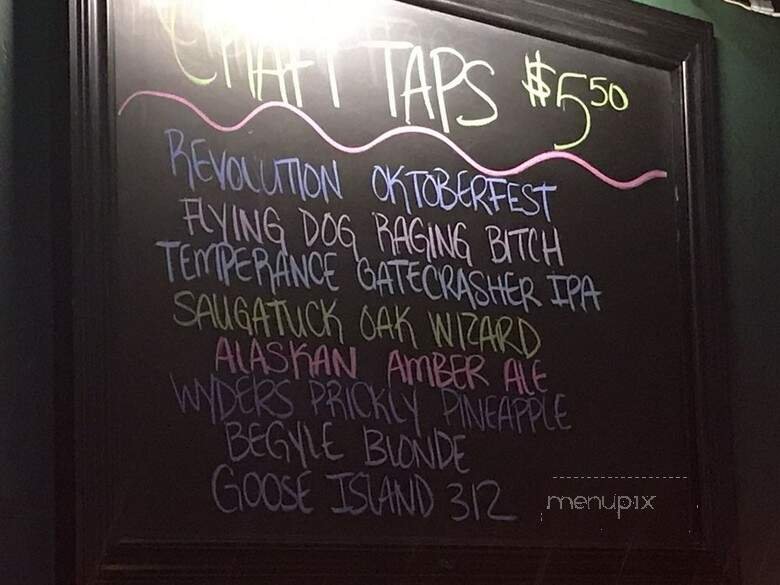 CRAFT TAPS $5.50
REVOLUTION OKTOBERFEST
FLYING DOG RAGING BITCH
TEMPERANCE GATECRASHER IPA
SAUGATUCK OAK WIZARD
ALASKAN AMBER ALE
WYDERS PRICKLY PINEAPPLE
BEGYLE BLONDE
GOOSE ISLAND 312
menupix